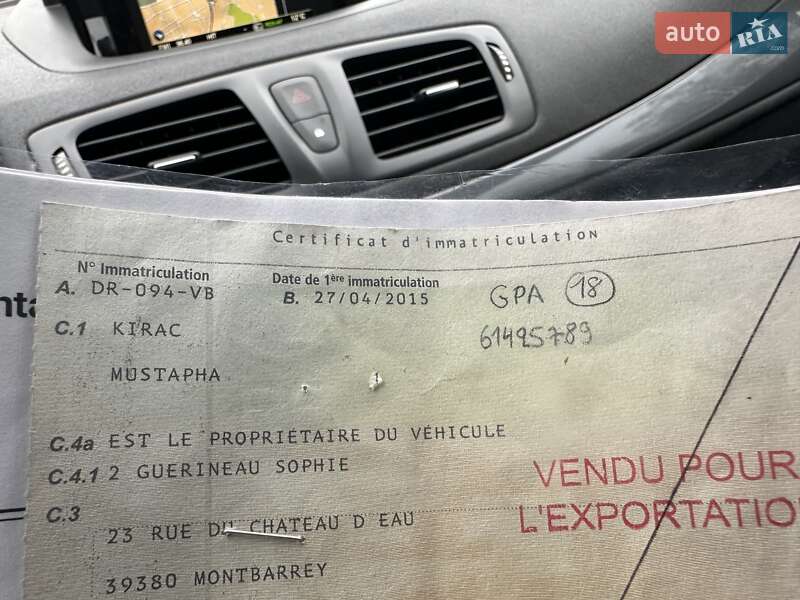 auto RIA.com
Certificat d'immatriculation
N° Immatriculation
A. DR-094-VB
Date de 1ère immatriculation
B. 27/04/2015
GPA 18
61425789
C.1 KIRAC
MUSTAPHA
C.4a EST LE PROPRIÉTAIRE DU VÉHICULE
C.4.1 2 GUERINEAU SOPHIE
C.3
23 RUE DU CHATEAU D EAU
39380 MONTBARREY
VENDU POUR
L'EXPORTATIO